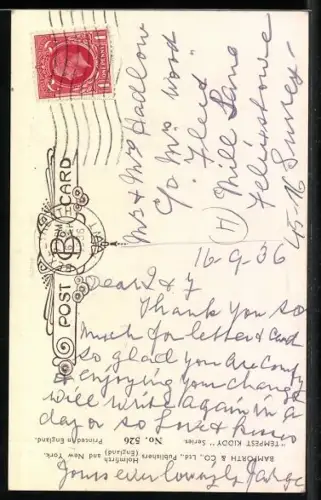 POST CARD
Mr & Mrs Hadlow
C/o Mrs Wood
"Fleet"
Mill Lane
Felixstowe
16-9-36
Dear I & J
Thank you so
much for letter & Card
so glad you are comfy
& enjoying your change
will write again in a
day or so love & kisses
Yours ever lovingly
BAMFORTH & CO., Ltd., Publishers
Holmfirth (England) and New York.
"TEMPEST KIDDY" Series.
No. 526 Printed in England.